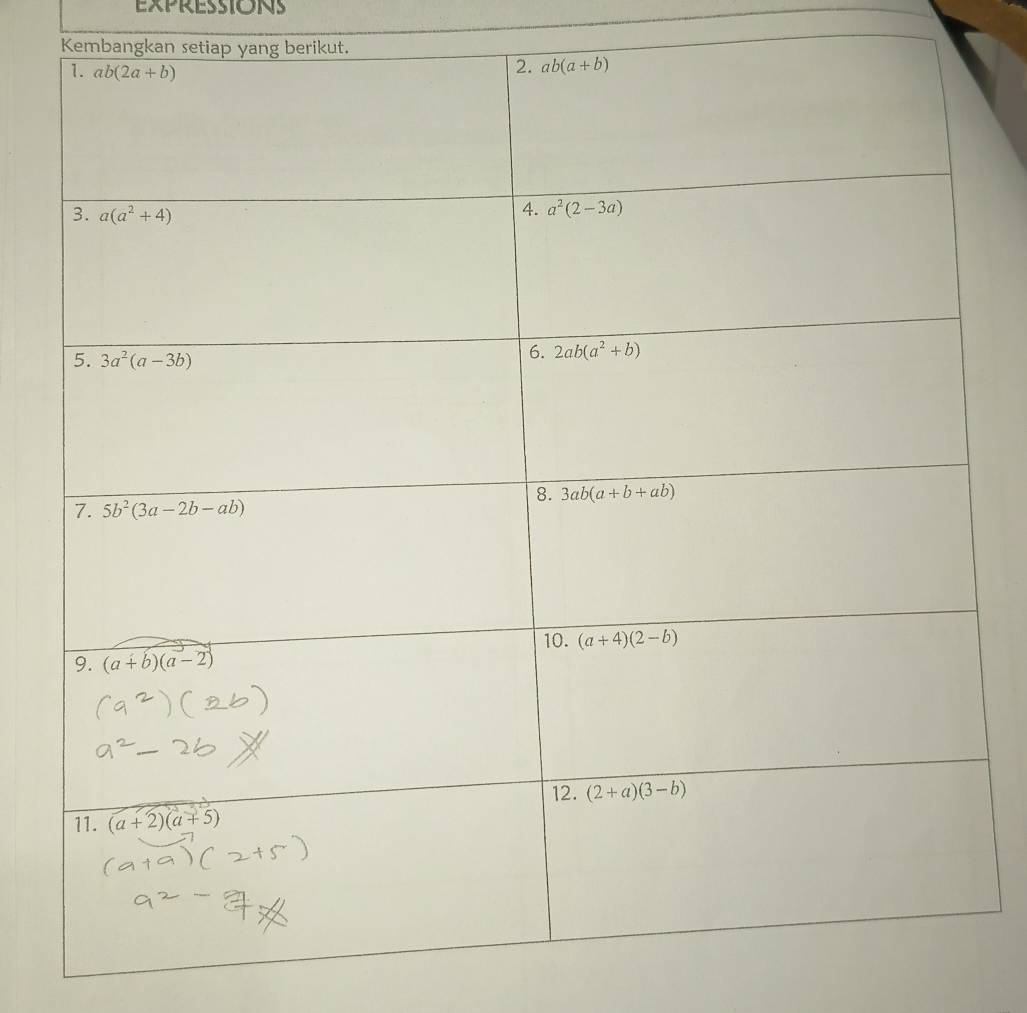 EXPRESSIONS
Kembangkan setiap yang berikut.
1. ab(2a + b)
2. ab(a + b)
3. a(a² + 4)
4. a²(2 − 3a)
5. 3a²(a − 3b)
6. 2ab(a² + b)
7. 5b²(3a − 2b − ab)
8. 3ab(a + b + ab)
9. (a + b)(a − 2)
(a²)(2b)
a² − 2b
10. (a + 4)(2 − b)
11. (a + 2)(a + 5)
(a + a)(2 + 5)
a² − 7
12. (2 + a)(3 − b)